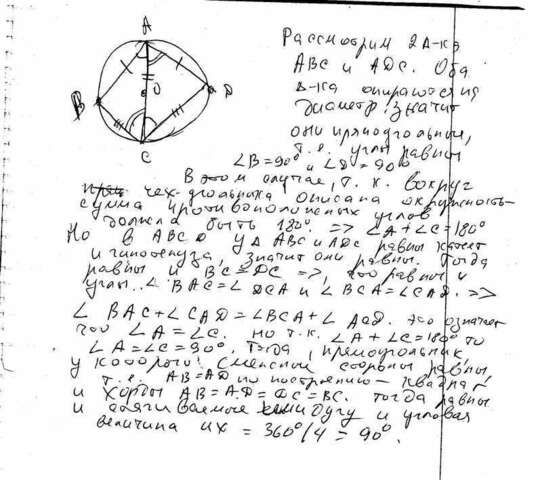 A
O
B
D
C
Рассмотрим 2 Δ-ка
ABC и ADC. Оба
Δ-ка опираются на
диаметр, значит
они прямоугольной,
т.е. углы равны
∠B=90° и ∠D=90°
В этом случае, т.к. вокруг
чех-угольника описана окружность
сумма противоположных углов
должна быть 180° => ∠A+∠C=180°
Но в ABCD у Δ ABC и ADC равны катет
и гипотенуза, значит они равны. Тогда
равны и BC=DC =>, равны и
углы. ∠BAC=∠DCA и ∠BCA=∠CAD. =>
∠BAC+∠CAD=∠BCA+∠ACD. это означает
что ∠A=∠C. но т.к. ∠A+∠C=180° то
∠A=∠C=90°. Тогда, прямоугольник,
у которого смежные стороны равны,
т.е. AB=AD по построению - квадрат
и хорды AB=AD=DC=BC. тогда равны
и стягиваемые дугу и угловая
величина их = 360°/4 = 90°.